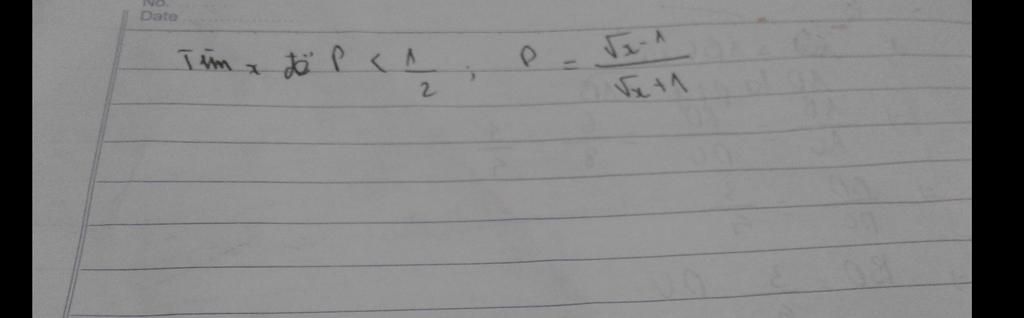 No.
Date
Tìm x để P < 1/2 ; P = (√x - 1)/(√x + 1)